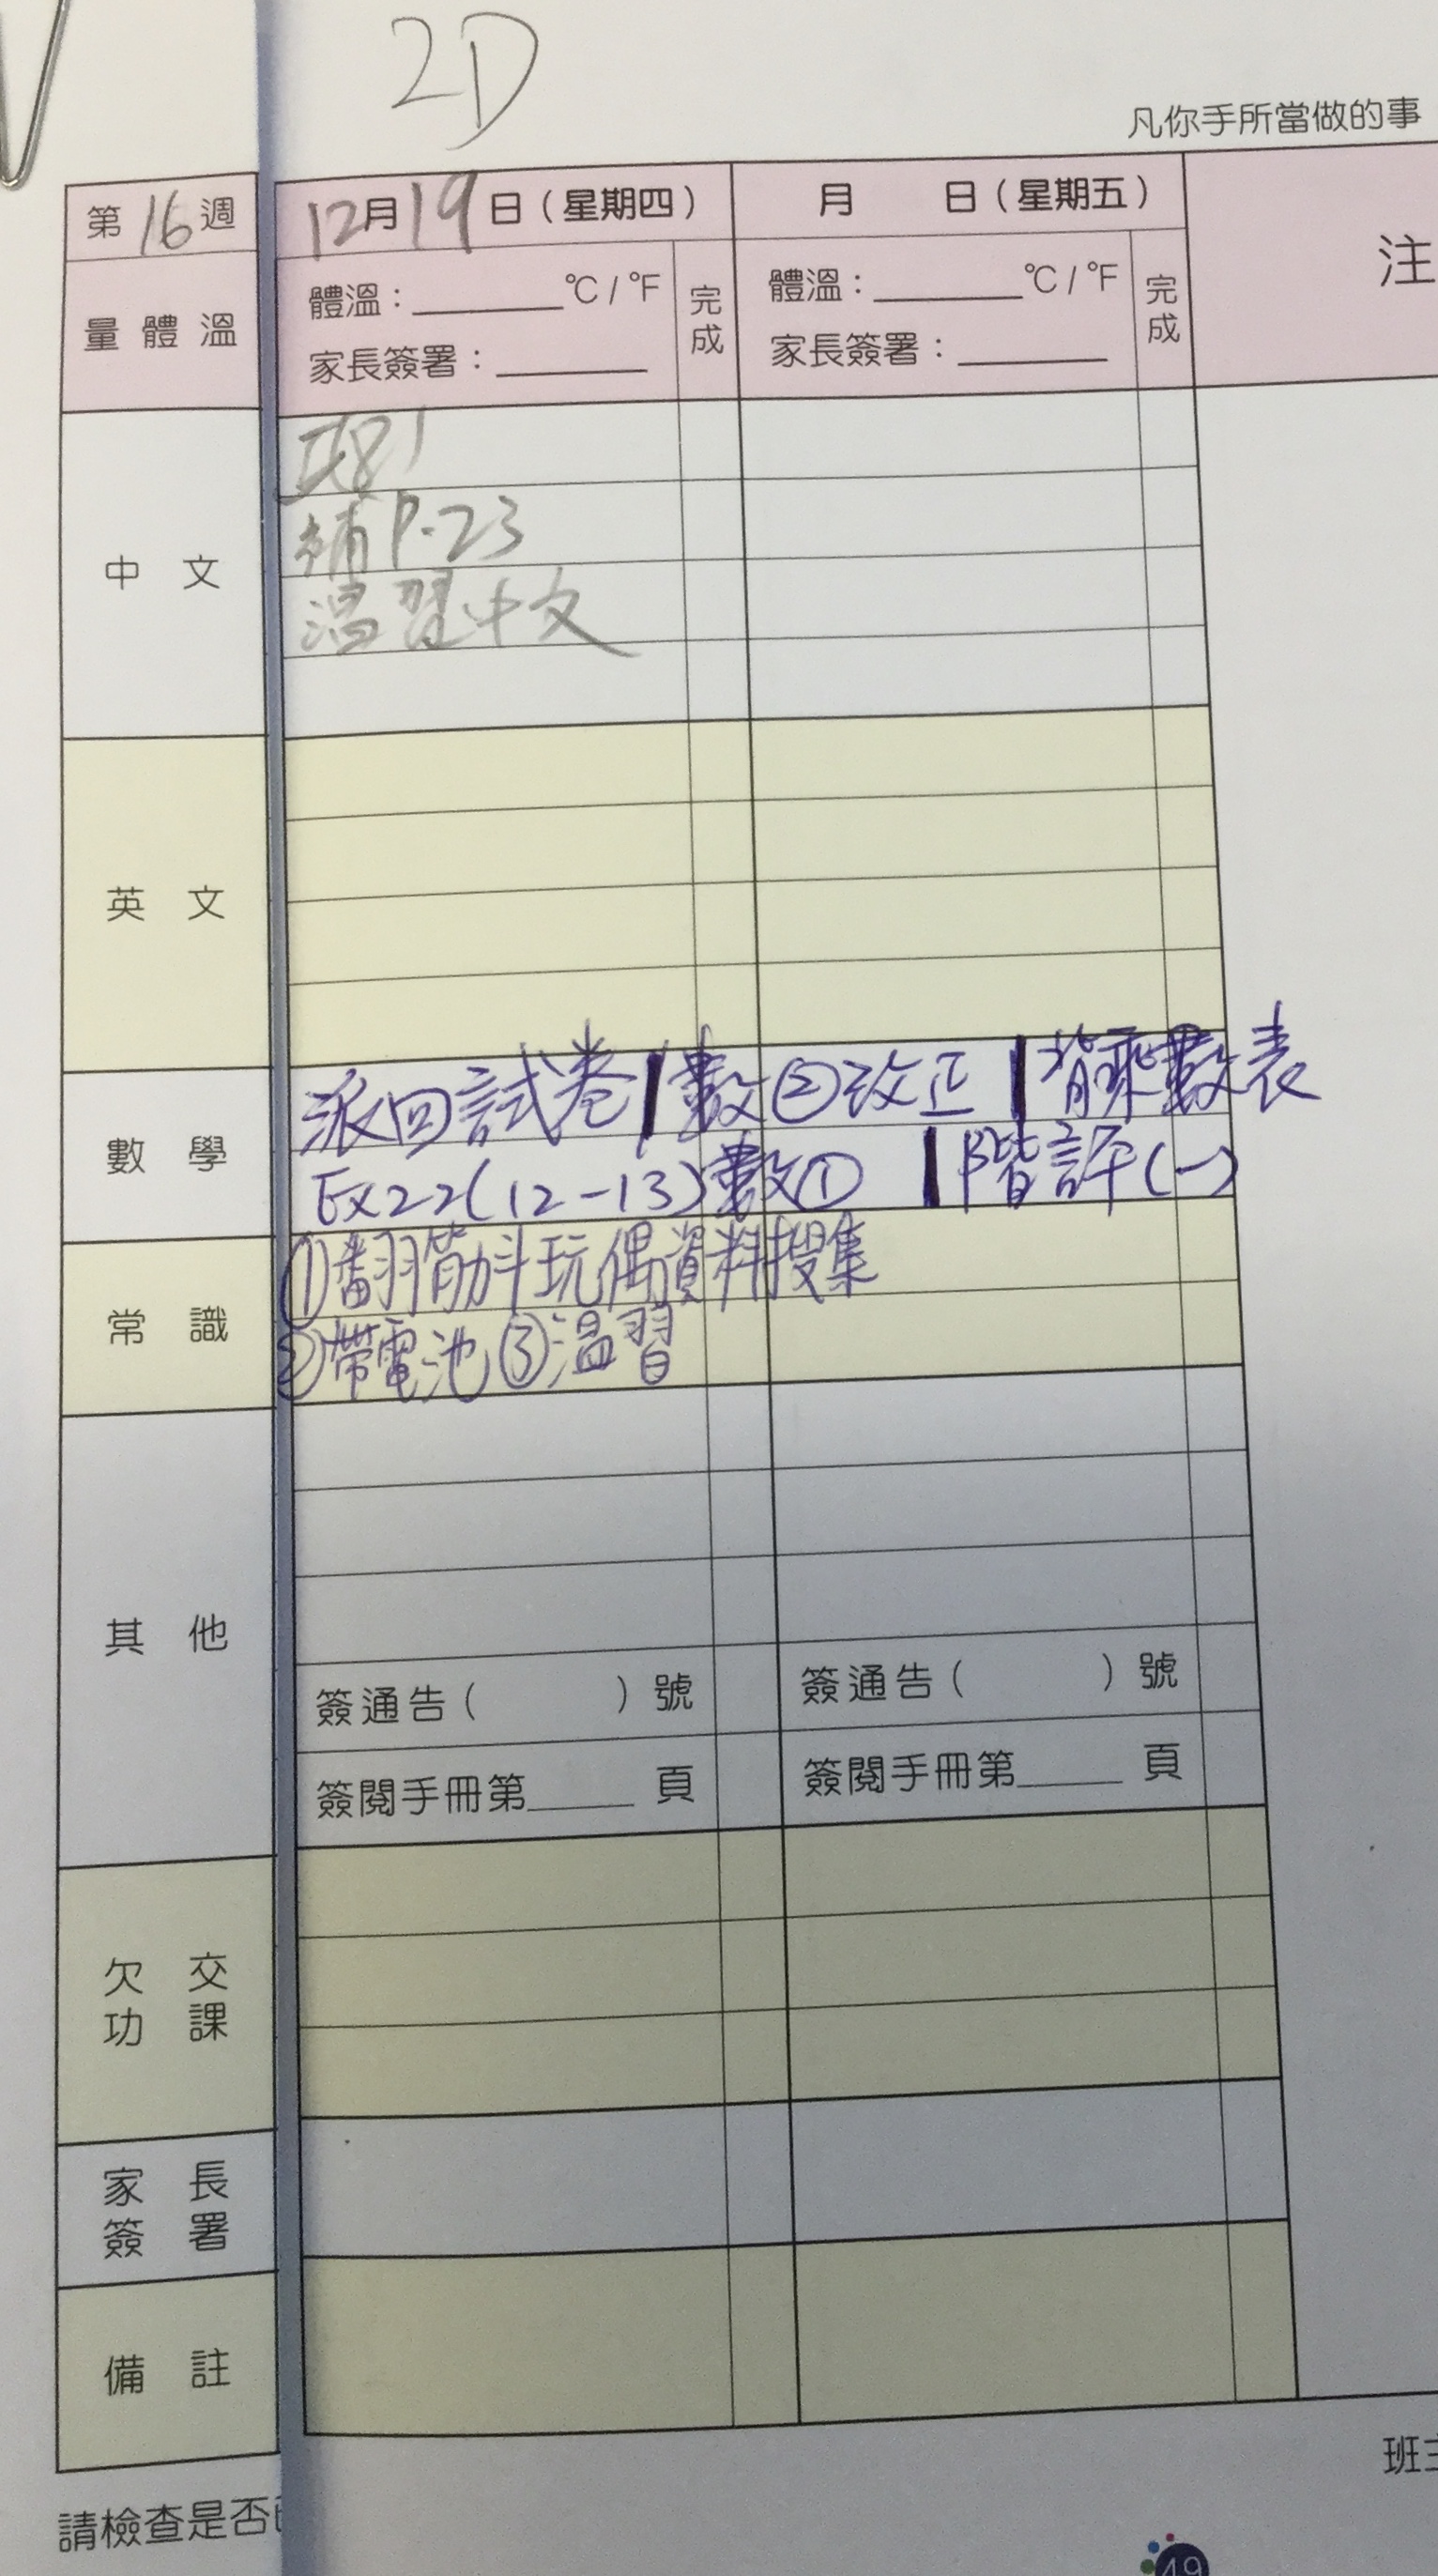 2D
凡你手所當做的事
第16週
12月19日(星期四)
月 日(星期五)
注
量體溫
體溫：______°C / °F
家長簽署：______
完成
體溫：______°C / °F
家長簽署：______
完成
中文
補P.23
溫習中文
英文
數學
派回試卷|數②改正|背乘數表
Ex22(12-13)數①|階評(一)
常識
①翻筋斗玩偶資料搜集
②帶電池③溫習
其他
簽通告( )號
簽通告( )號
簽閱手冊第____頁
簽閱手冊第____頁
欠交功課
家長簽署
備註
班主
請檢查是否已
49